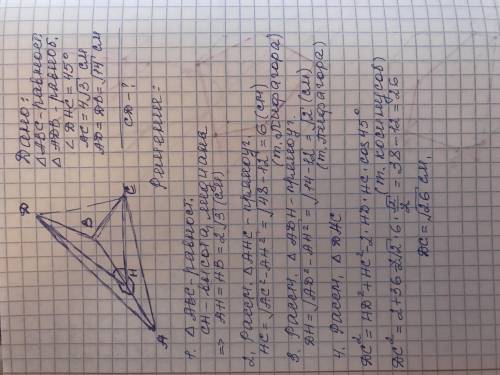 Дано:
△ABC-равност.
△ADB-равноб.
∠DHC=45°
AC=4√3 см
AD=DB=√14 см
CD-?
D
B
C
H
A
Решение:
1. △ABC-равност.
CH-высота, медиана
=> AH=HB=2√3(см)
2. Рассм. △AHC-прямоуг.
HC=√AC²-AH²=√48-12=6(см)
(т. Пифагора)
3. Рассм. △ADH-прямоуг.
DH=√AD²-AH²=√14-12=√2(см)
(т. Пифагора)
4. Рассм. △DAC
DC²=HD²+HC²-2·HD·HC·cos45°
(т. косинусов)
DC²=2+36-2√2·6·√2/2=38-12=26
DC=√26 см.